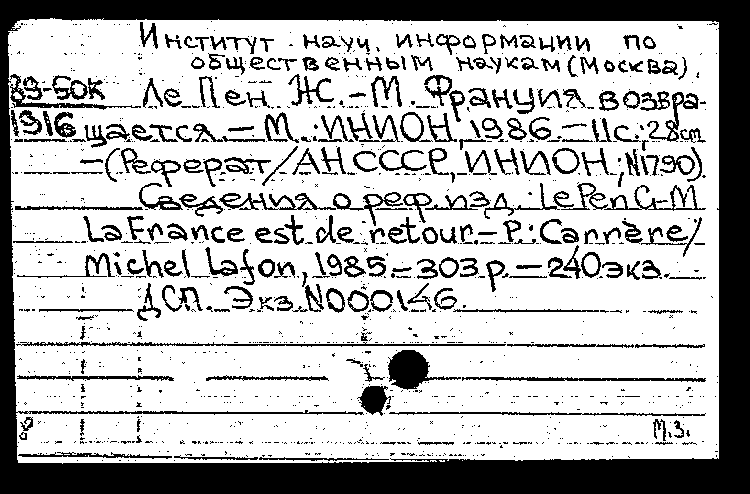 Институт науч. информации по
общественным наукам (Москва).
89-50к Ле Пен Ж.-М. Франция возвра-
1316 щается. - М.: ИНИОН, 1986. - 11с.; 28 cm
- (Реферат / АН СССР, ИНИОН; N1790)
Сведения о реф. изд.: Le Pen G-M
La France est de retour. - P.: Carrère /
Michel Lafon, 1985. - 303 p. - 240 экз.
ДСП. Экз. N000146.
М.З.